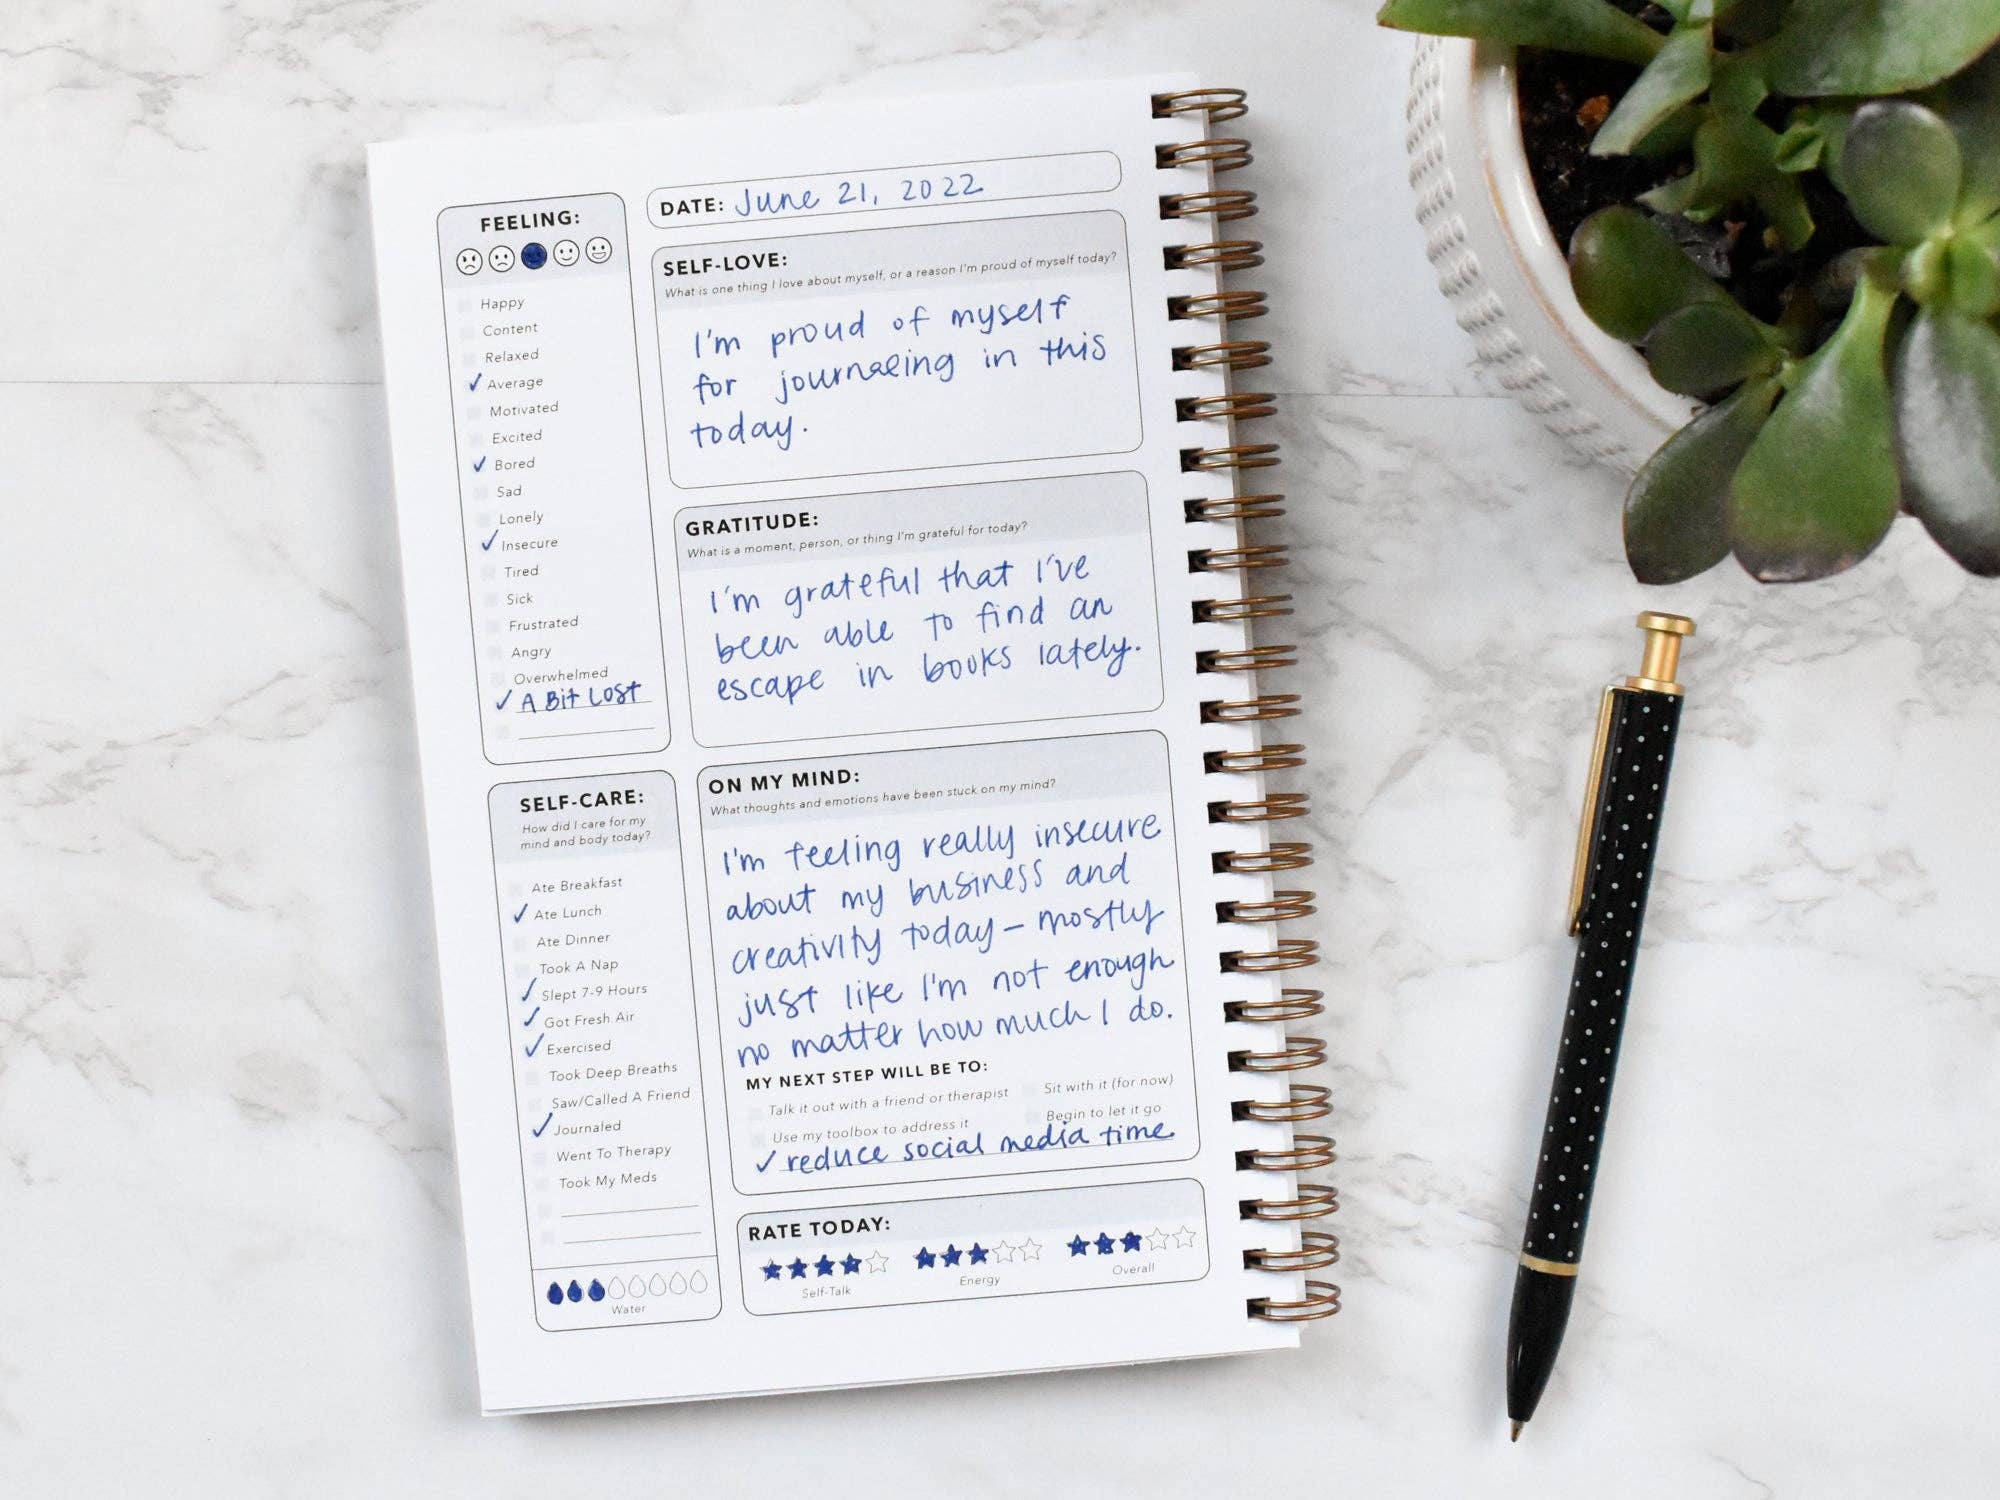 FEELING:
Happy
Content
Relaxed
✓ Average
Motivated
Excited
✓ Bored
Sad
Lonely
✓ Insecure
Tired
Sick
Frustrated
Angry
Overwhelmed
✓ A Bit Lost
SELF-CARE:
How did I care for my
mind and body today?
Ate Breakfast
✓ Ate Lunch
Ate Dinner
Took A Nap
✓ Slept 7-9 Hours
✓ Got Fresh Air
✓ Exercised
Took Deep Breaths
Saw/Called A Friend
✓ Journaled
Went To Therapy
Took My Meds
Water
DATE: June 21, 2022
SELF-LOVE:
What is one thing I love about myself, or a reason I'm proud of myself today?
I'm proud of myself
for journaling in this
today.
GRATITUDE:
What is a moment, person, or thing I'm grateful for today?
I'm grateful that I've
been able to find an
escape in books lately.
ON MY MIND:
What thoughts and emotions have been stuck on my mind?
I'm feeling really insecure
about my business and
creativity today – mostly
just like I'm not enough
no matter how much I do.
MY NEXT STEP WILL BE TO:
Talk it out with a friend or therapist
Sit with it (for now)
Use my toolbox to address it
Begin to let it go
✓ reduce social media time.
RATE TODAY:
Self-Talk
Energy
Overall